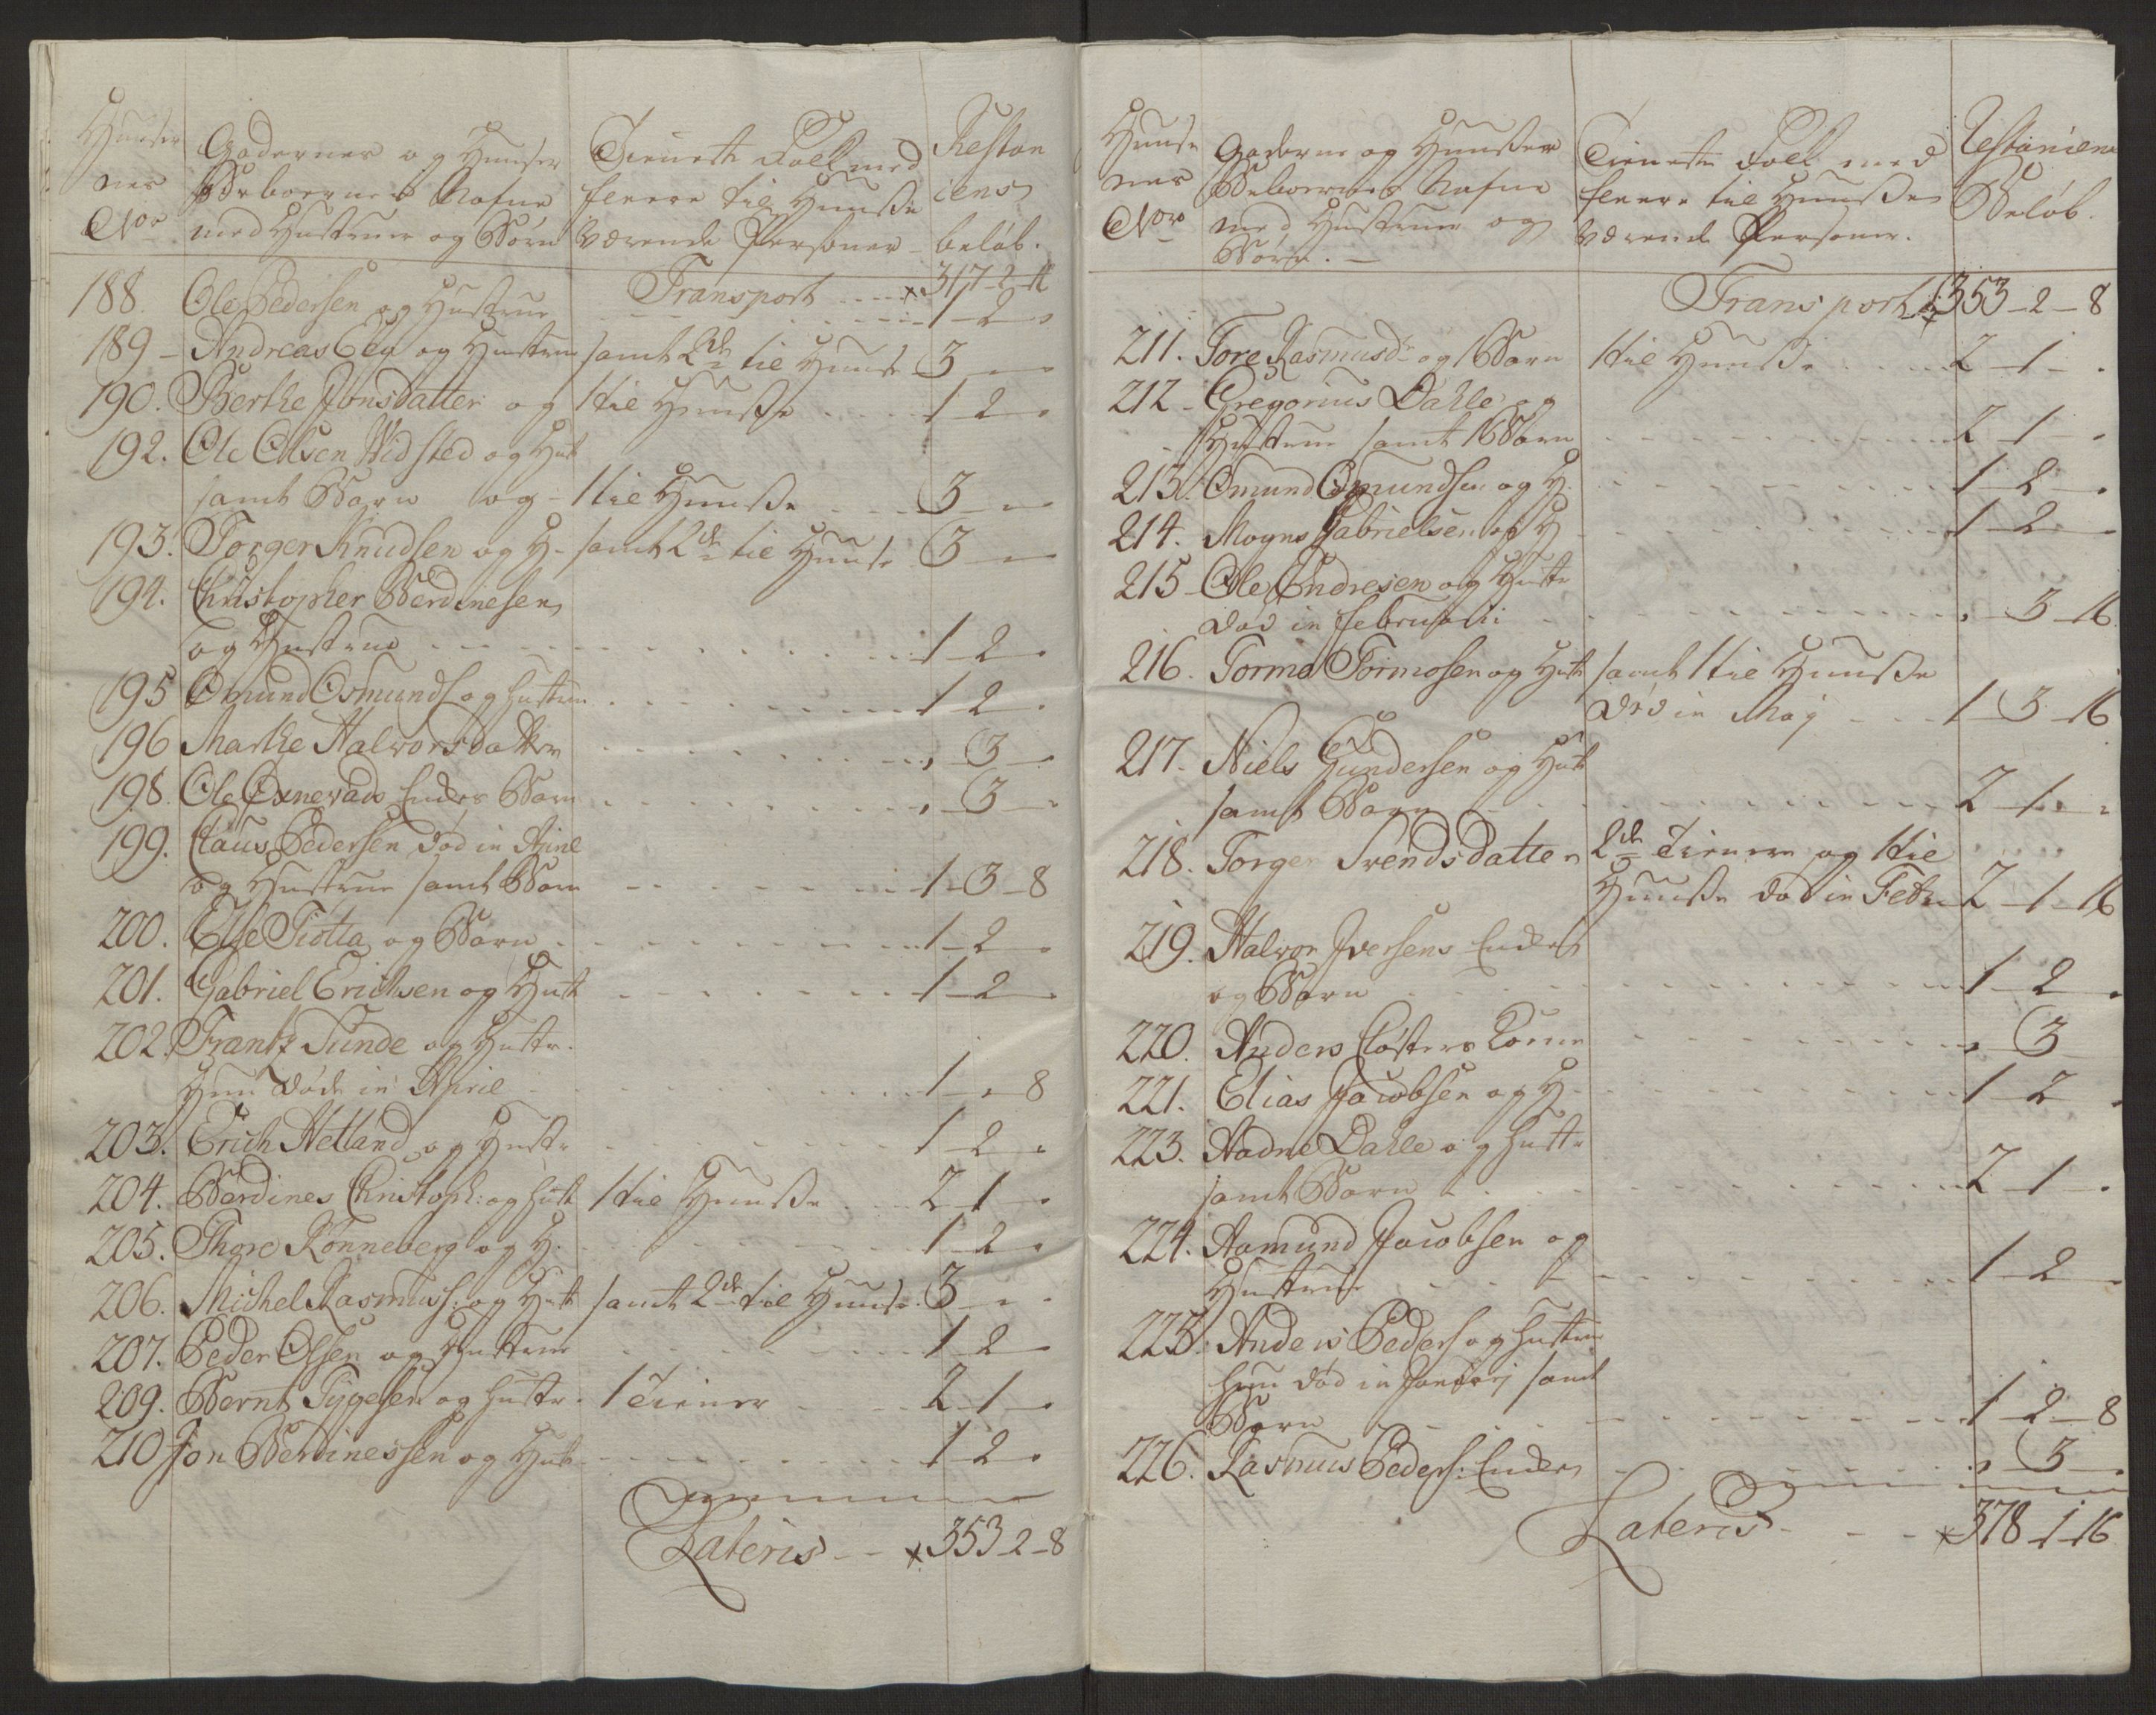 Huuser
nes
No
Gadernes og Huuser
Beboernes Nafne
med Hustruer og Børn
Tieneste Folk med
fleere til Huuse
værende Personer
Restan
ciens
beløb.
Transport - - - 317-2-16
188. Ole Pedersen og Hustrue 1-2-"
189 - Andreas Eeg og Hustrue samt 2de til Huuse 3-"-"
190. Berthe Jonsdatter og 1 til Huuse 1-2-"
192. Ole Olsen Widsted og Hust
samt Barn og - 1 til Huuse 3-"-"
193. Torger Knudsen og H - samt 2de til Huuse 3-"-"
194. Christopher Berdinesen
og Hustrue 1-2-"
195 Omund Osmunds og Hustrue 1-2-"
196 Marthe Halvorsdatter "-3-"
198. Ole Oxnevads Enke Barn "-3-"
199. Claus Pedersen død in April
og Hustrue samt Barn 1-3-8
200. Else Tiøtta og Barn 1-2-"
201. Gabriel Erichsen og Hust 1-2-"
202. Frantz Sunde og Hustr.
Hun døde in April 1-"-8
203. Erich Hetland og Hustr 1-2-"
204. Berdines Christoph: og Hust 1 til Huuse 2-1-"
205. Thore Rønneberg og H. 1-2-"
206. Michel Rasmus: og Hust samt 2de til Huuse 3-"-"
207. Peder Olsen og Hustrue 1-2-"
209. Bernt Tygesen og Hustr. 1 Tiener 2-1-"
210 Jon Berdinessen og Hust 1-2-"
Lateris - - 353-2-8
Huuse
nes
No
Gaderne og Huuser
Beboernes Nafne
med Hustruer og
Børn.
Tieneste Folk med
fleere til Huuse
værende Personer.
Restanciens
Beløb.
Transport 353-2-8
211. Tore Rasmusd. og 1 Barn 1 til Huuse 2-1-"
212 - Gregorius Dahle og
Hustrue samt 1 Barn 2-1-"
213. Omund Omundsen og H. 1-2-"
214. Mogns Gabrielsen og H 1-2-"
215 - Ole Endresen og Hustr
død in Februarii "-3-16
216. Tormo Tormosen og Hust samt 1 til Huuse
død in Maj 1-3-16
217. Niels Gundersen og Hust
samt Barn 2-1-"
218. Torger Svendsdatter 2de Tienere og 1 til
Huuse død in Febr 2-1-16
219. Halvor Iversens Enke
og Barn 1-2-"
220. Anders Closters Kone "-3-"
221. Elias Jacobsen og H. 1-2-"
223. Aadne Dahle og Hustr
samt Barn 2-1-"
224. Aamund Jacobsen og
Hustrue 1-2-"
225. Anders Peders og Hustrue
hun død in Januarj samt
Barn 1-2-8
226. Rasmus Peders: Enke "-3-"
Lateris - - - 378-1-16